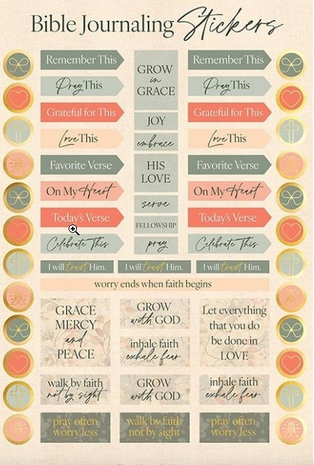 Bible Journaling Stickers
Remember This
Pray This
Grateful for This
Love This
Favorite Verse
On My Heart
Today's Verse
Celebrate This
GROW
in
GRACE
JOY
embrace
HIS
LOVE
serve
FELLOWSHIP
pray
Remember This
Pray This
Grateful for This
Love This
Favorite Verse
On My Heart
Today's Verse
Celebrate This
I will trust Him.
I will trust Him.
I will trust Him.
worry ends when faith begins
GRACE
MERCY
and
PEACE
GROW
with GOD
inhale faith
exhale fear
Let everything
that you do
be done in
LOVE
walk by faith
not by sight
GROW
with GOD
inhale faith
exhale fear
pray often
worry less
walk by faith
not by sight
pray often
worry less